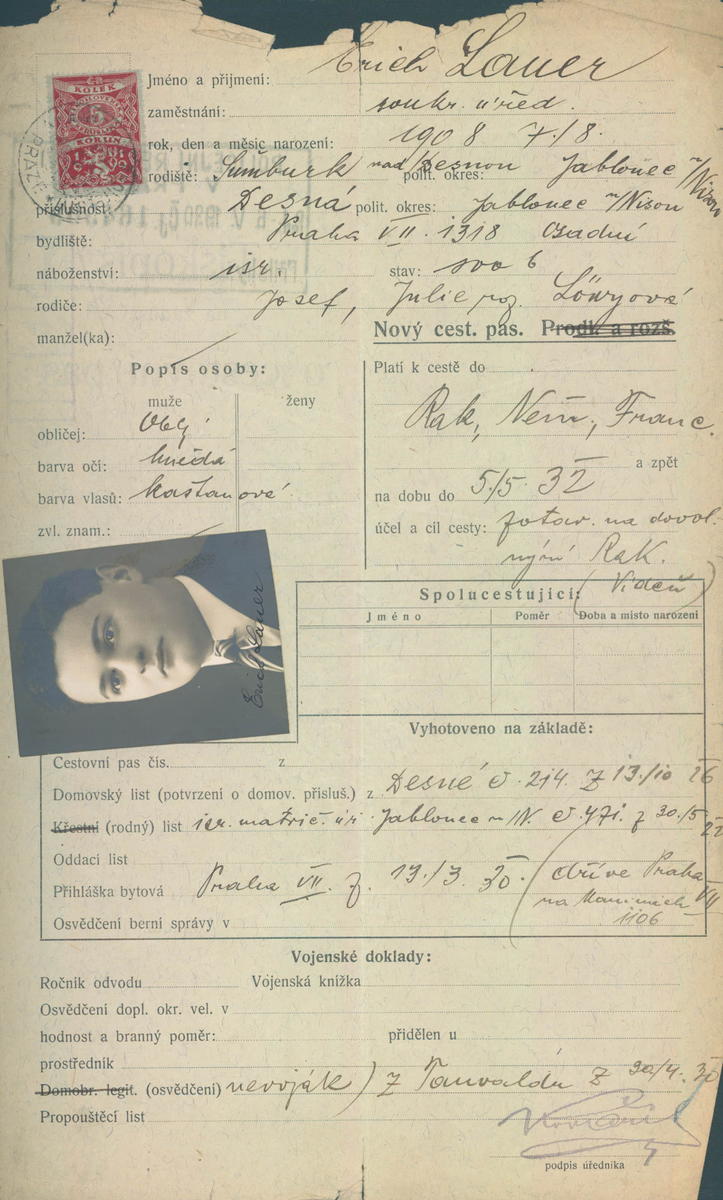 KOLEK
KORUN
Jméno a přijmení: Erich Lauer
zaměstnání: soukr. úřed.
rok, den a měsíc narození: 1908 7./8.
rodiště: Šumburk nad Desnou polit. okres: Jablonec n/Nisou
příslušnost: Desná polit. okres: Jablonec n/Nisou
bydliště: Praha VII. 1318
náboženství: isr. stav: svob
rodiče: Josef, Julie roz. Löwyová
manžel(ka):
Nový cest. pas. Prodl. a rozš.
Popis osoby:
muže ženy
obličej: Obl.
barva očí: hnědá
barva vlasů: kaštanová
zvl. znam.:
Platí k cestě do
Rak, Něm, Franc.
a zpět
na dobu do 5./5. 32
účel a cíl cesty: na dovol.
nyní Rak.
(Vídeň)
Erich Lauer
Spolucestující:
Jméno Poměr Doba a místo narození
Vyhotoveno na základě:
Cestovní pas čís. z
Domovský list (potvrzení o domov. přísluš.) z Desné č. 214. z 13./10 26
Křestní (rodný) list isr. matrič. úř. Jablonec n/N. č. 471. z 30./5
Oddací list
Přihláška bytová Praha VII. z. 13./3. 30. (dříve Praha VII
na Maninách
1106
Osvědčení berní správy v
Vojenské doklady:
Ročník odvodu Vojenská knížka
Osvědčení dopl. okr. vel. v
hodnost a branný poměr: přidělen u
prostředník
Domobr. legit. (osvědčení) nevoják) z Tanvaldu z 30/4. 30
Propouštěcí list
podpis úředníka